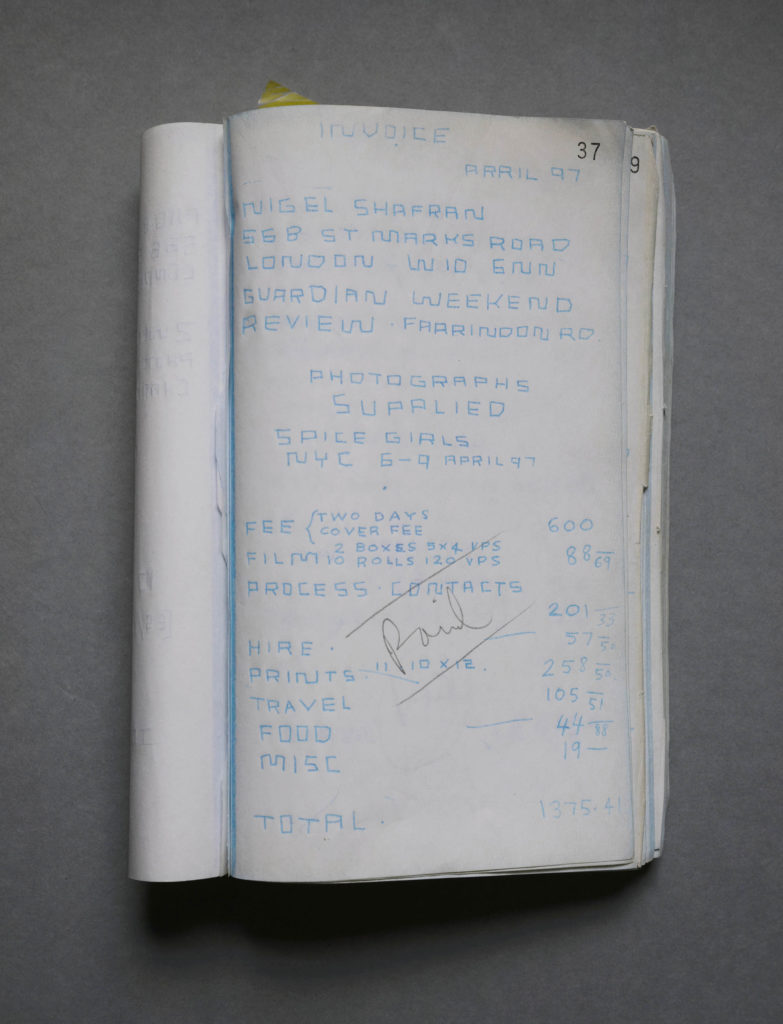 INVOICE
37
9
APRIL 97
NIGEL SHAFRAN
56B ST MARKS ROAD
LONDON W10 6NN
GUARDIAN WEEKEND
REVIEW · FARRINDON RD.
PHOTOGRAPHS
SUPPLIED
SPICE GIRLS
NYC 6-9 APRIL 97
FEE { TWO DAYS
COVER FEE 600
2 BOXES 5x4 VPS
FILM 10 ROLLS 120 VPS 88 69
PROCESS · CONTACTS
201 33
Paid
HIRE · 57 50
PRINTS · 11 10 x 12. 258 50
TRAVEL 105 51
FOOD 44 88
MISC 19 —
TOTAL 1375.41